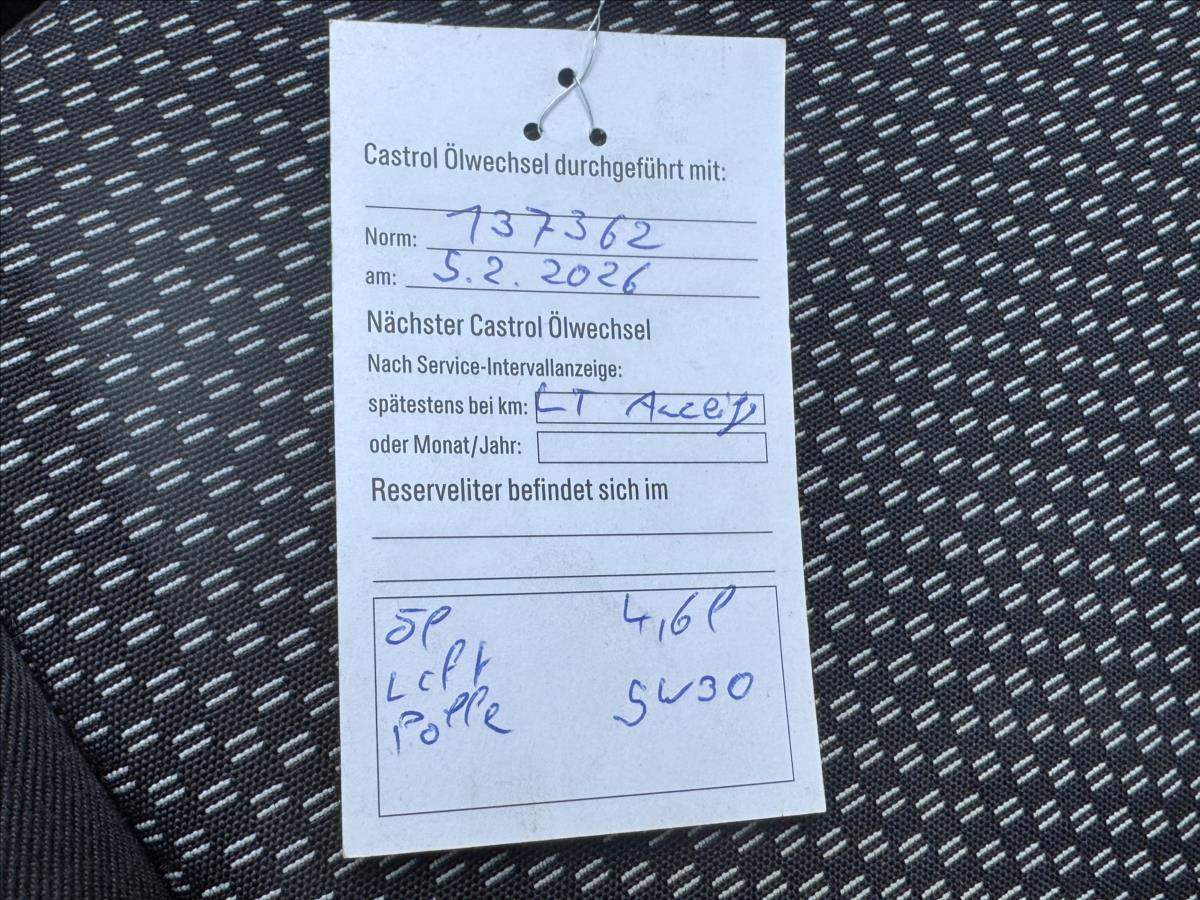 Castrol Ölwechsel durchgeführt mit:
Norm: 137362
am: 5.2.2026
Nächster Castrol Ölwechsel
Nach Service-Intervallanzeige:
spätestens bei km: LT Anzeige
oder Monat/Jahr:
Reserveliter befindet sich im
Öl 4,6l
Luft
Polle 5W30